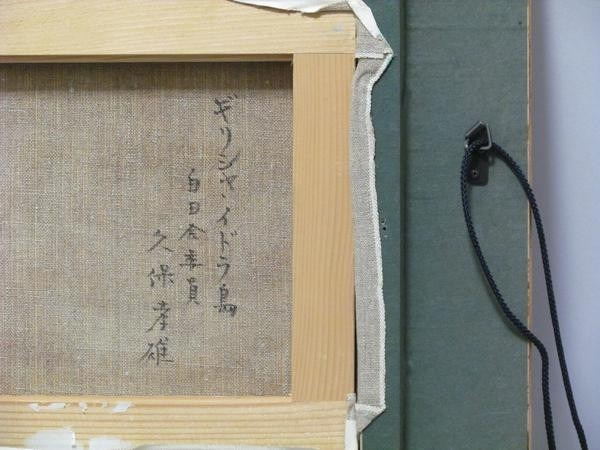 ギリシャ・イドラ島
白日会委員
久保孝雄